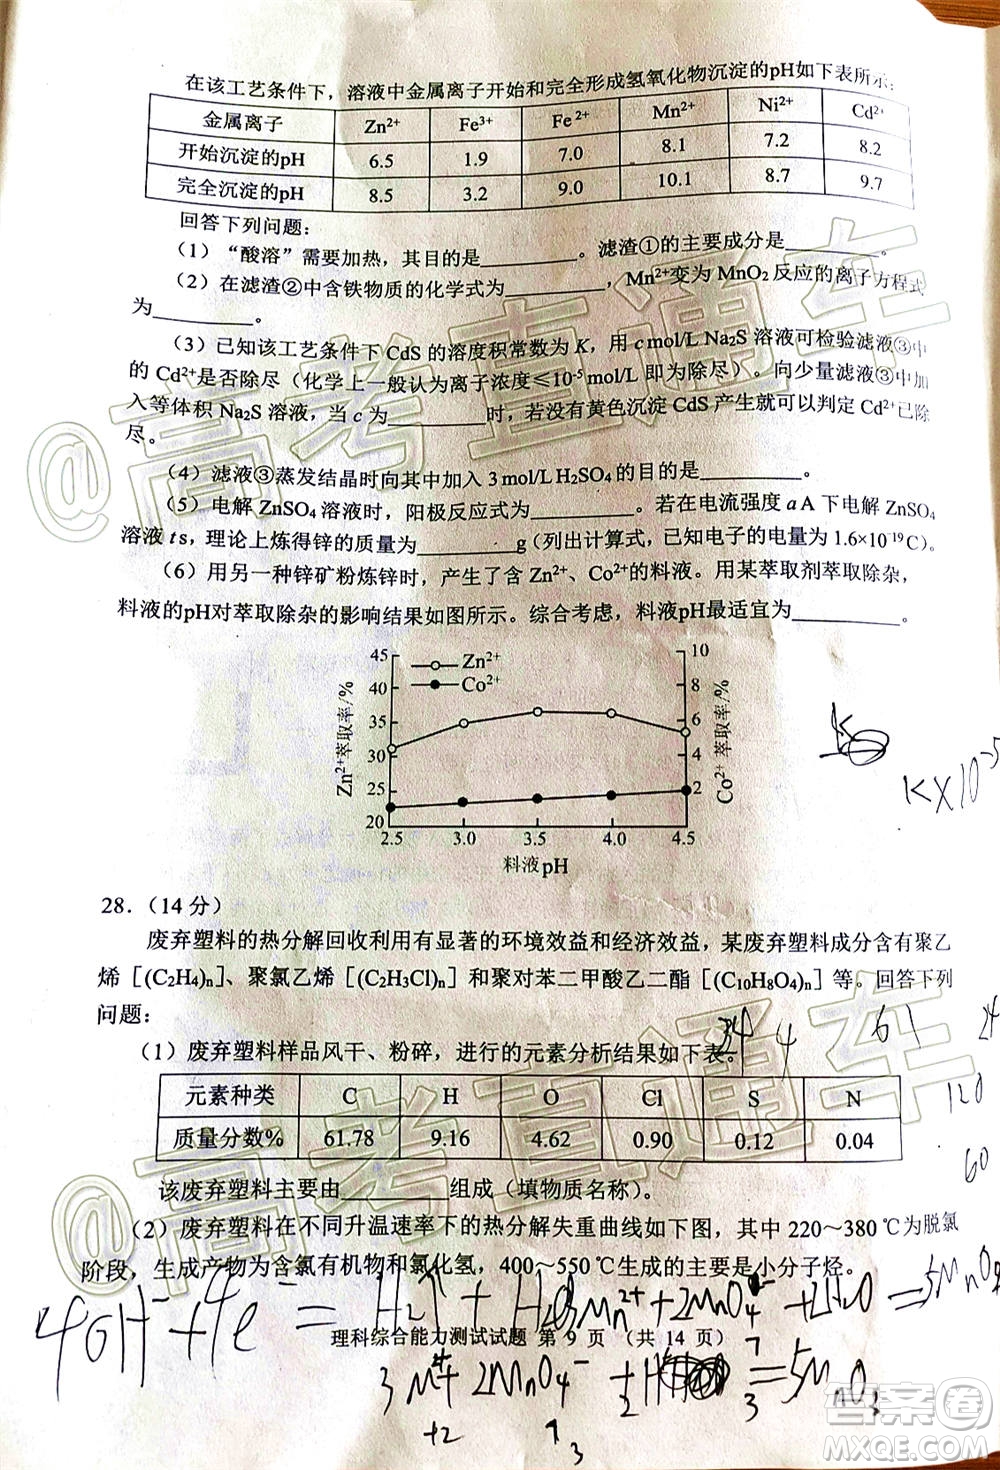 在该工艺条件下，溶液中金属离子开始和完全形成氢氧化物沉淀的pH如下表所示：
金属离子 Zn²⁺ Fe³⁺ Fe²⁺ Mn²⁺ Ni²⁺ Cd²⁺
开始沉淀的pH 6.5 1.9 7.0 8.1 7.2 8.2
完全沉淀的pH 8.5 3.2 9.0 10.1 8.7 9.7
回答下列问题：
（1）“酸溶”需要加热，其目的是________。滤渣①的主要成分是________。
（2）在滤渣②中含铁物质的化学式为________，Mn²⁺变为 MnO₂ 反应的离子方程式
为________。
（3）已知该工艺条件下 CdS 的溶度积常数为 K，用 c mol/L Na₂S 溶液可检验滤液③中
的 Cd²⁺是否除尽（化学上一般认为离子浓度≤10⁻⁵ mol/L 即为除尽）。向少量滤液③中加
入等体积 Na₂S 溶液，当 c 为________时，若没有黄色沉淀 CdS 产生就可以判定 Cd²⁺已除
尽。
（4）滤液③蒸发结晶时向其中加入 3 mol/L H₂SO₄ 的目的是________。
（5）电解 ZnSO₄ 溶液时，阳极反应式为________。若在电流强度 a A 下电解 ZnSO₄
溶液 t s，理论上炼得锌的质量为________g（列出计算式，已知电子的电量为 1.6×10⁻¹⁹ C）。
（6）用另一种锌矿粉炼锌时，产生了含 Zn²⁺、Co²⁺的料液。用某萃取剂萃取除杂，
料液的pH对萃取除杂的影响结果如图所示。综合考虑，料液pH最适宜为________。
Zn²⁺
Co²⁺
45 40 35 30 25 20
Zn²⁺萃取率/%
10 8 6 4 2
Co²⁺萃取率/%
2.5 3.0 3.5 4.0 4.5
料液pH
K×10⁻⁵
28．（14 分）
废弃塑料的热分解回收利用有显著的环境效益和经济效益，某废弃塑料成分含有聚乙
烯［(C₂H₄)ₙ］、聚氯乙烯［(C₂H₃Cl)ₙ］和聚对苯二甲酸乙二酯［(C₁₀H₈O₄)ₙ］等。回答下列
问题：
（1）废弃塑料样品风干、粉碎，进行的元素分析结果如下表。
元素种类 C H O Cl S N
质量分数% 61.78 9.16 4.62 0.90 0.12 0.04
120
60
该废弃塑料主要由________组成（填物质名称）。
（2）废弃塑料在不同升温速率下的热分解失重曲线如下图，其中 220～380℃为脱氯
阶段，生成产物为含氯有机物和氯化氢，400～550℃生成的主要是小分子烃。
理科综合能力测试试题 第 9 页 （共 14 页）
@高考直通车
@高考直通车
答案圈
MXQE.COM